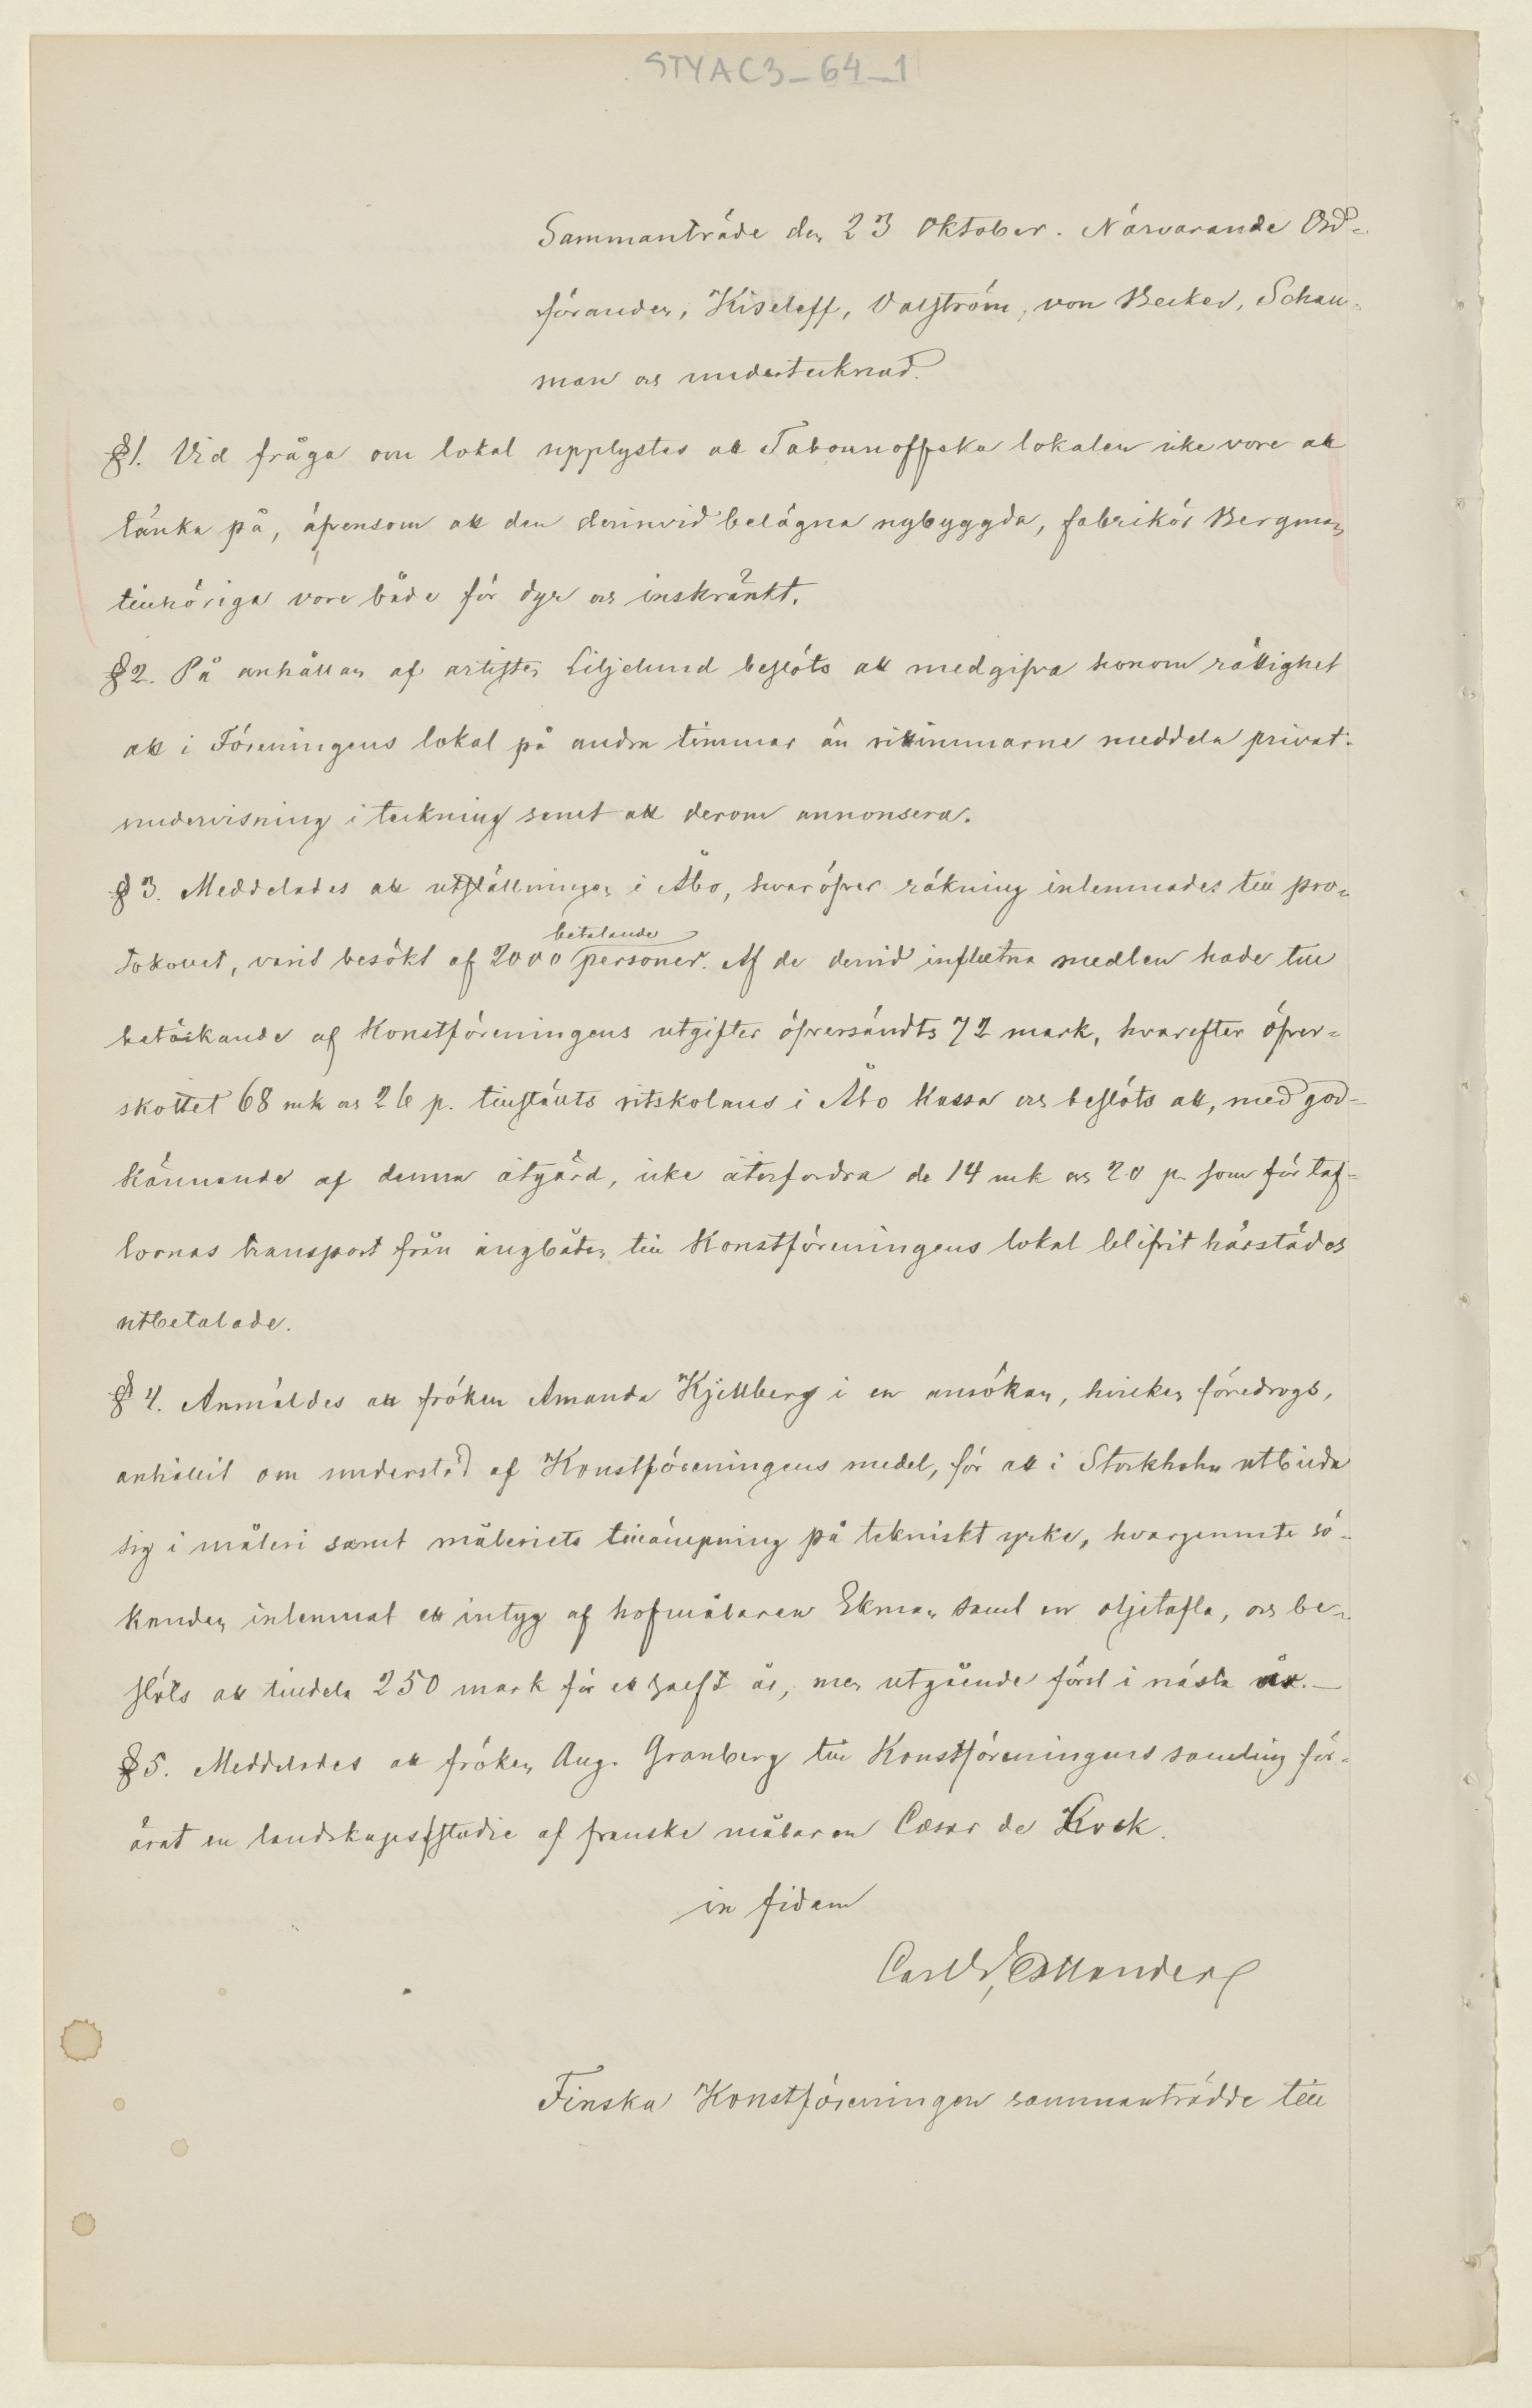 STYAC3_64_1
Sammanträde den 23 Oktober. Närvarande Ord-
föranden, Kiseleff, Valström, von Becker, Schau-
man och undertecknad.
§1. Vid fråga om lokal upplystes att Tabounoffska lokalen icke vore att
tänka på, äfvensom att den derinvid belägna nybyggda, fabrikör Bergman
tillhöriga vore både för dyr och inskränkt.
§2. På anhållan af artisten Liljelund beslöts att medgifva honom rättighet
att i Föreningens lokal på andra timmar än rittimmarne meddela privat-
undervisning i teckning samt att derom annonsera.
§3. Meddelades att utställningen i Åbo, hvaröfver räkning inlemnades till pro-
tokollet, varit besökt af 2000 betalande personer. Af de dervid influtna medlen hade till
betäckande af Konstföreningens utgifter öfversändts 72 mark, hvarefter öfver-
skottet 68 mk och 26 p. tillstälts ritskolans i Åbo Kassa och beslöts att, med god-
kännande af denna åtgärd, icke återfordra de 14 mk och 20 p. som för taf-
lornas transport från ångbåten till Konstföreningens lokal blifvit härstädes
utbetalade.
§4. Anmäldes att fröken Amanda Kjellberg i en ansökan, hvilken föredrogs,
anhållit om understöd af Konstföreningens medel, för att i Stockholm utbilda
sig i måleri samt måleriets tillämpning på tekniskt yrke, hvarjemnte sö-
kanden inlemnat ett intyg af hofmålaren Ekman samt en oljetafla, och be-
slöts att tilldela 250 mark för ett halft år, men utgående först i nästa år. —
§5. Meddelades att fröken Aug. Granberg till Konstföreningens samling för-
ärat en landskapsstudie af franske målaren Cæsar de Kock.
in fidem
Carl G. Estlander
Finska Konstföreningen sammanträdde till